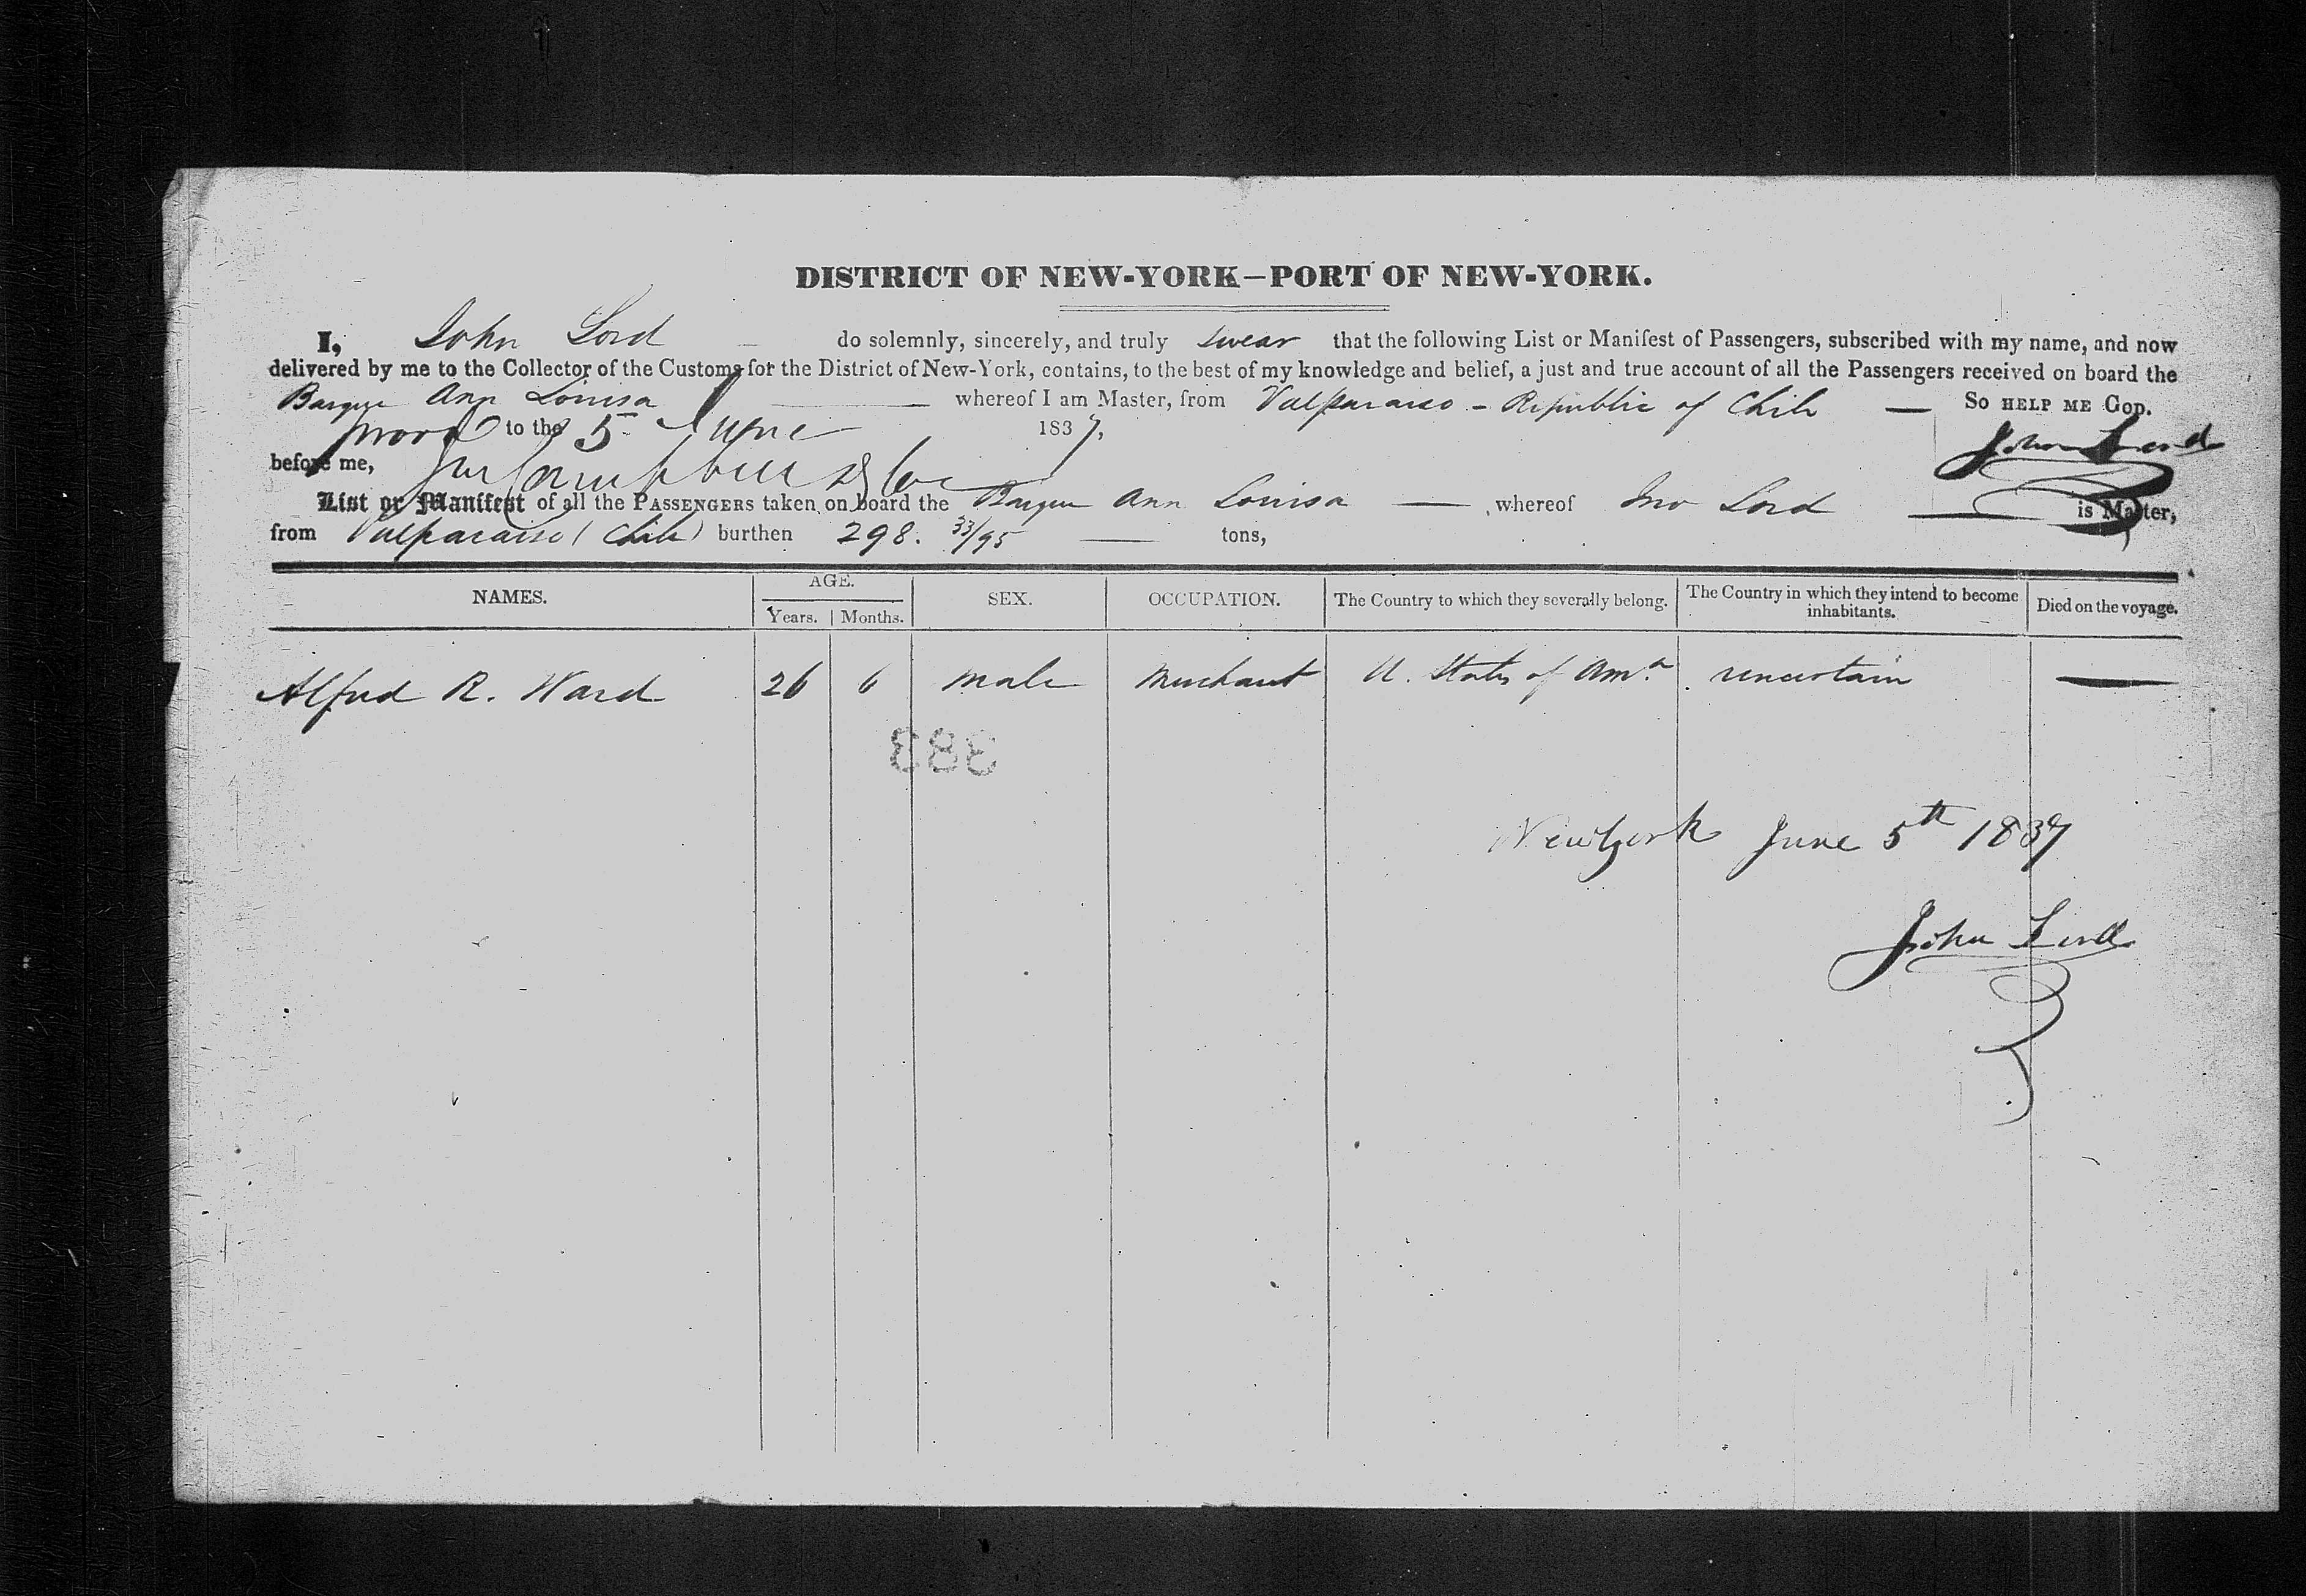 DISTRICT OF NEW-YORK—PORT OF NEW-YORK.
I, John Lord do solemnly, sincerely, and truly swear that the following List or Manifest of Passengers, subscribed with my name, and now
delivered by me to the Collector of the Customs for the District of New-York, contains, to the best of my knowledge and belief, a just and true account of all the Passengers received on board the
Barque Ann Louisa whereof I am Master, from Valparaiso - Republic of Chili — So HELP ME GOD.
to the 5 June 1837,
John Lord
before me,
List or Manifest of all the PASSENGERS taken on board the Barque Ann Louisa — whereof Jno Lord is Master,
from Valparaiso (Chili) burthen 298. 33/95 — tons,
NAMES. AGE. SEX. OCCUPATION. The Country to which they severally belong. The Country in which they intend to become inhabitants. Died on the voyage.
Years. Months.
Alfred R. Ward 26 6 Male Merchant U. States of Am.a uncertain —
383
New York June 5th 1837
John Lord